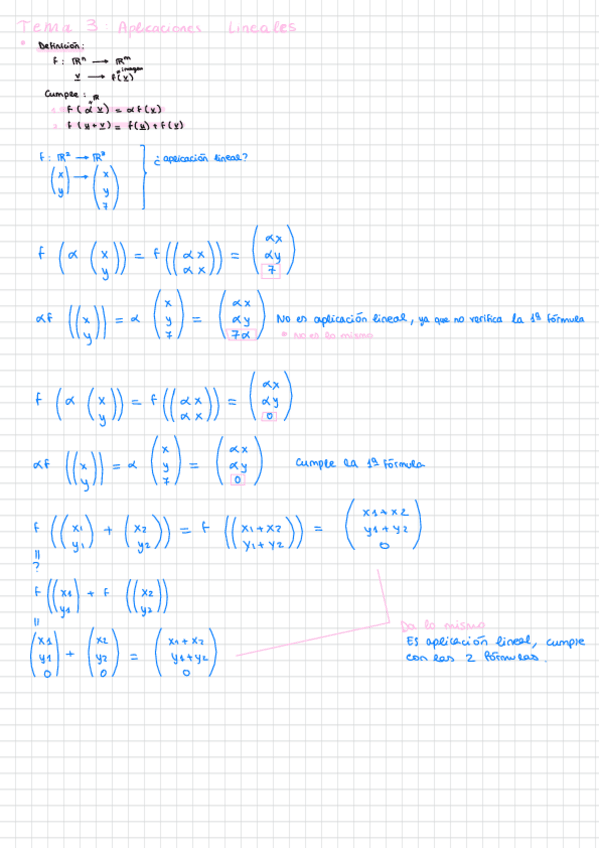 Tema 3: Aplicaciones Lineales
• Definición:
f: ℝⁿ → ℝᵐ
v → f(v) imagen
Cumple:
1 f(α v) = α f(v)
ℝ
2 f(u + v) = f(u) + f(v)
f: ℝ² → ℝ³ ¿aplicación lineal?
(x y) → (x y 7)
f (α (x y)) = f((αx αx)) = (αx αy 7)
αf ((x y)) = α (x y 7) = (αx αy 7α) No es aplicación lineal, ya que no verifica la 1ª fórmula
* No es lo mismo
f (α (x y)) = f((αx αx)) = (αx αy 0)
αf ((x y)) = α (x y 7) = (αx αy 0) Cumple la 1ª fórmula
f ((x1 y1) + (x2 y2)) = f ((x1+x2 y1+y2)) = (x1+x2 y1+y2 0)
=
?
f((x1 y1) + f ((x2 y2))
=
(x1 y1 0) + (x2 y2 0) = (x1+x2 y1+y2 0)
Da lo mismo
Es aplicación lineal, cumple
con las 2 fórmulas.